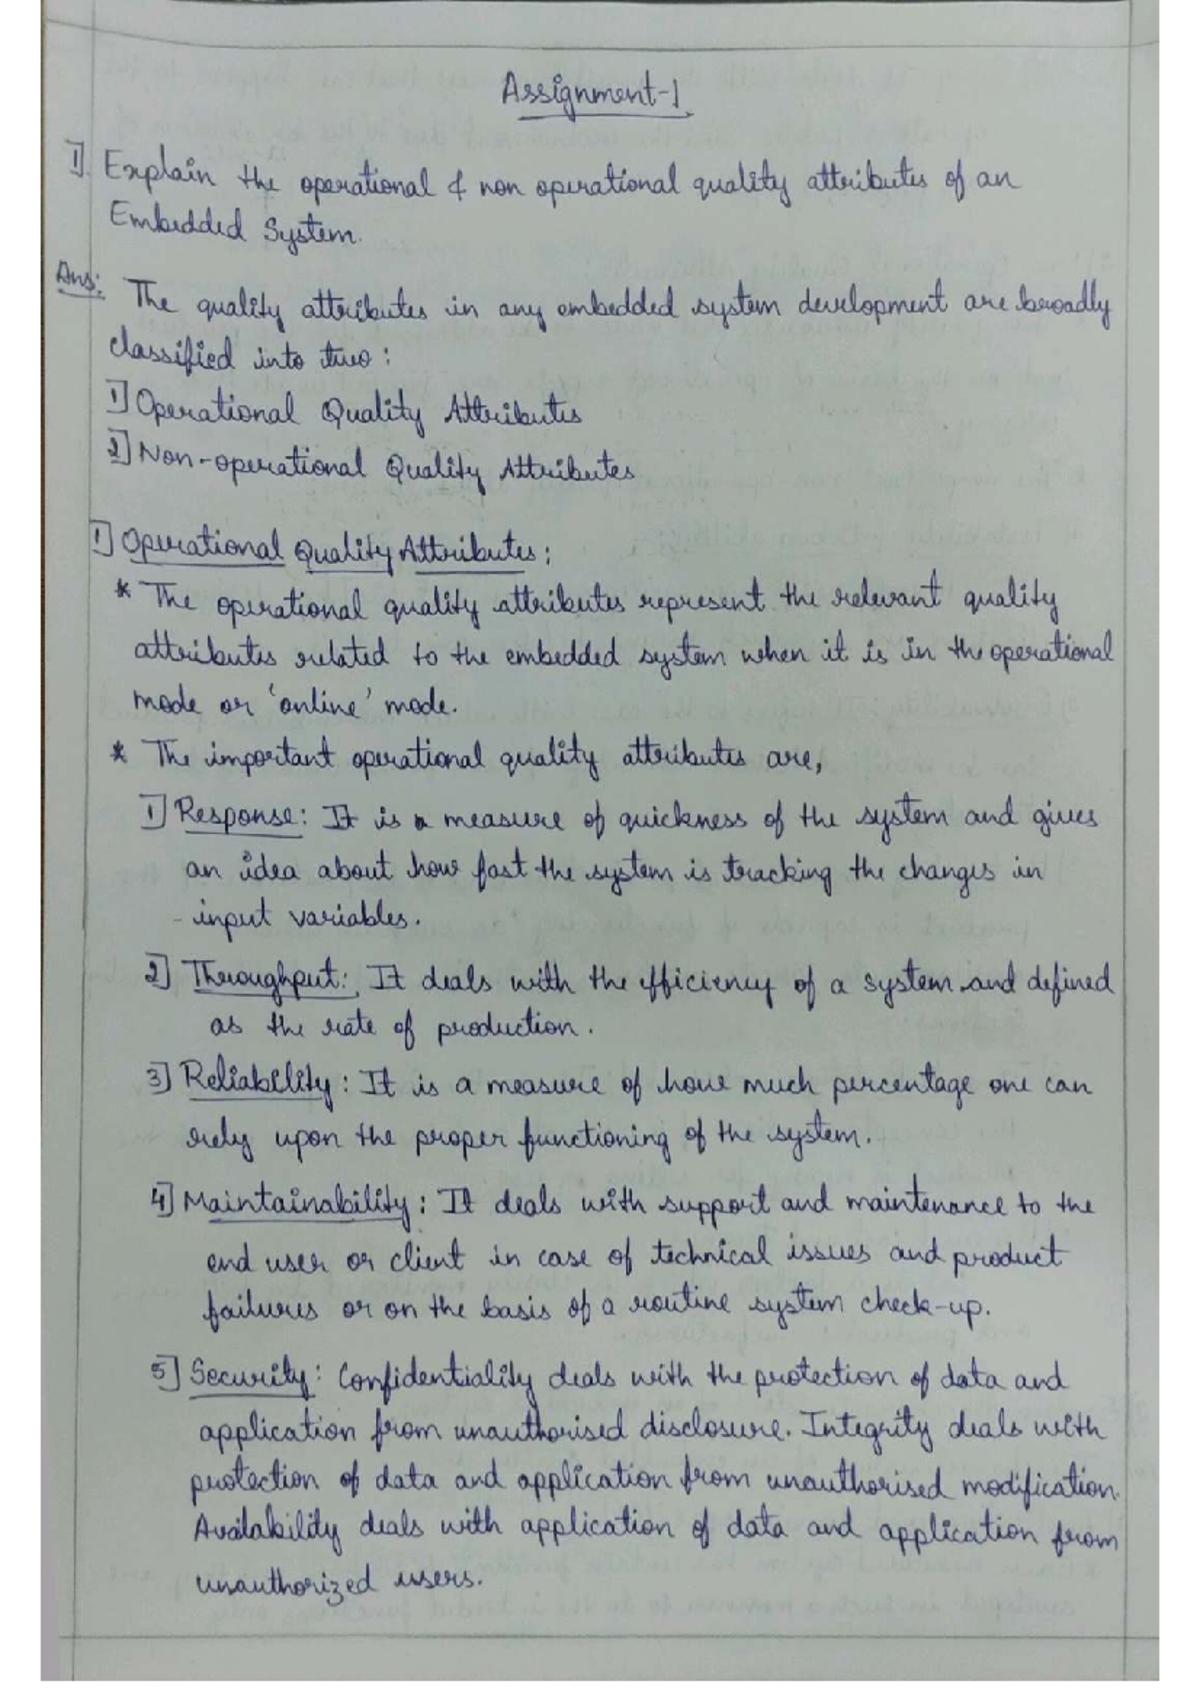 Assignment-1
1] Explain the operational & non operational quality attributes of an
Embedded System.
Ans: The quality attributes in any embedded system development are broadly
classified into two :
1] Operational Quality Attributes
2] Non-operational Quality Attributes
1] Operational Quality Attributes :
* The operational quality attributes represent the relevant quality
attributes related to the embedded system when it is in the operational
mode or 'online' mode.
* The important operational quality attributes are,
1] Response : It is a measure of quickness of the system and gives
an idea about how fast the system is tracking the changes in
input variables.
2] Throughput : It deals with the efficiency of a system and defined
as the rate of production.
3] Reliability : It is a measure of how much percentage one can
rely upon the proper functioning of the system.
4] Maintainability : It deals with support and maintenance to the
end user or client in case of technical issues and product
failures or on the basis of a routine system check-up.
5] Security : Confidentiality deals with the protection of data and
application from unauthorised disclosure. Integrity deals with
protection of data and application from unauthorised modification.
Availability deals with application of data and application from
unauthorized users.